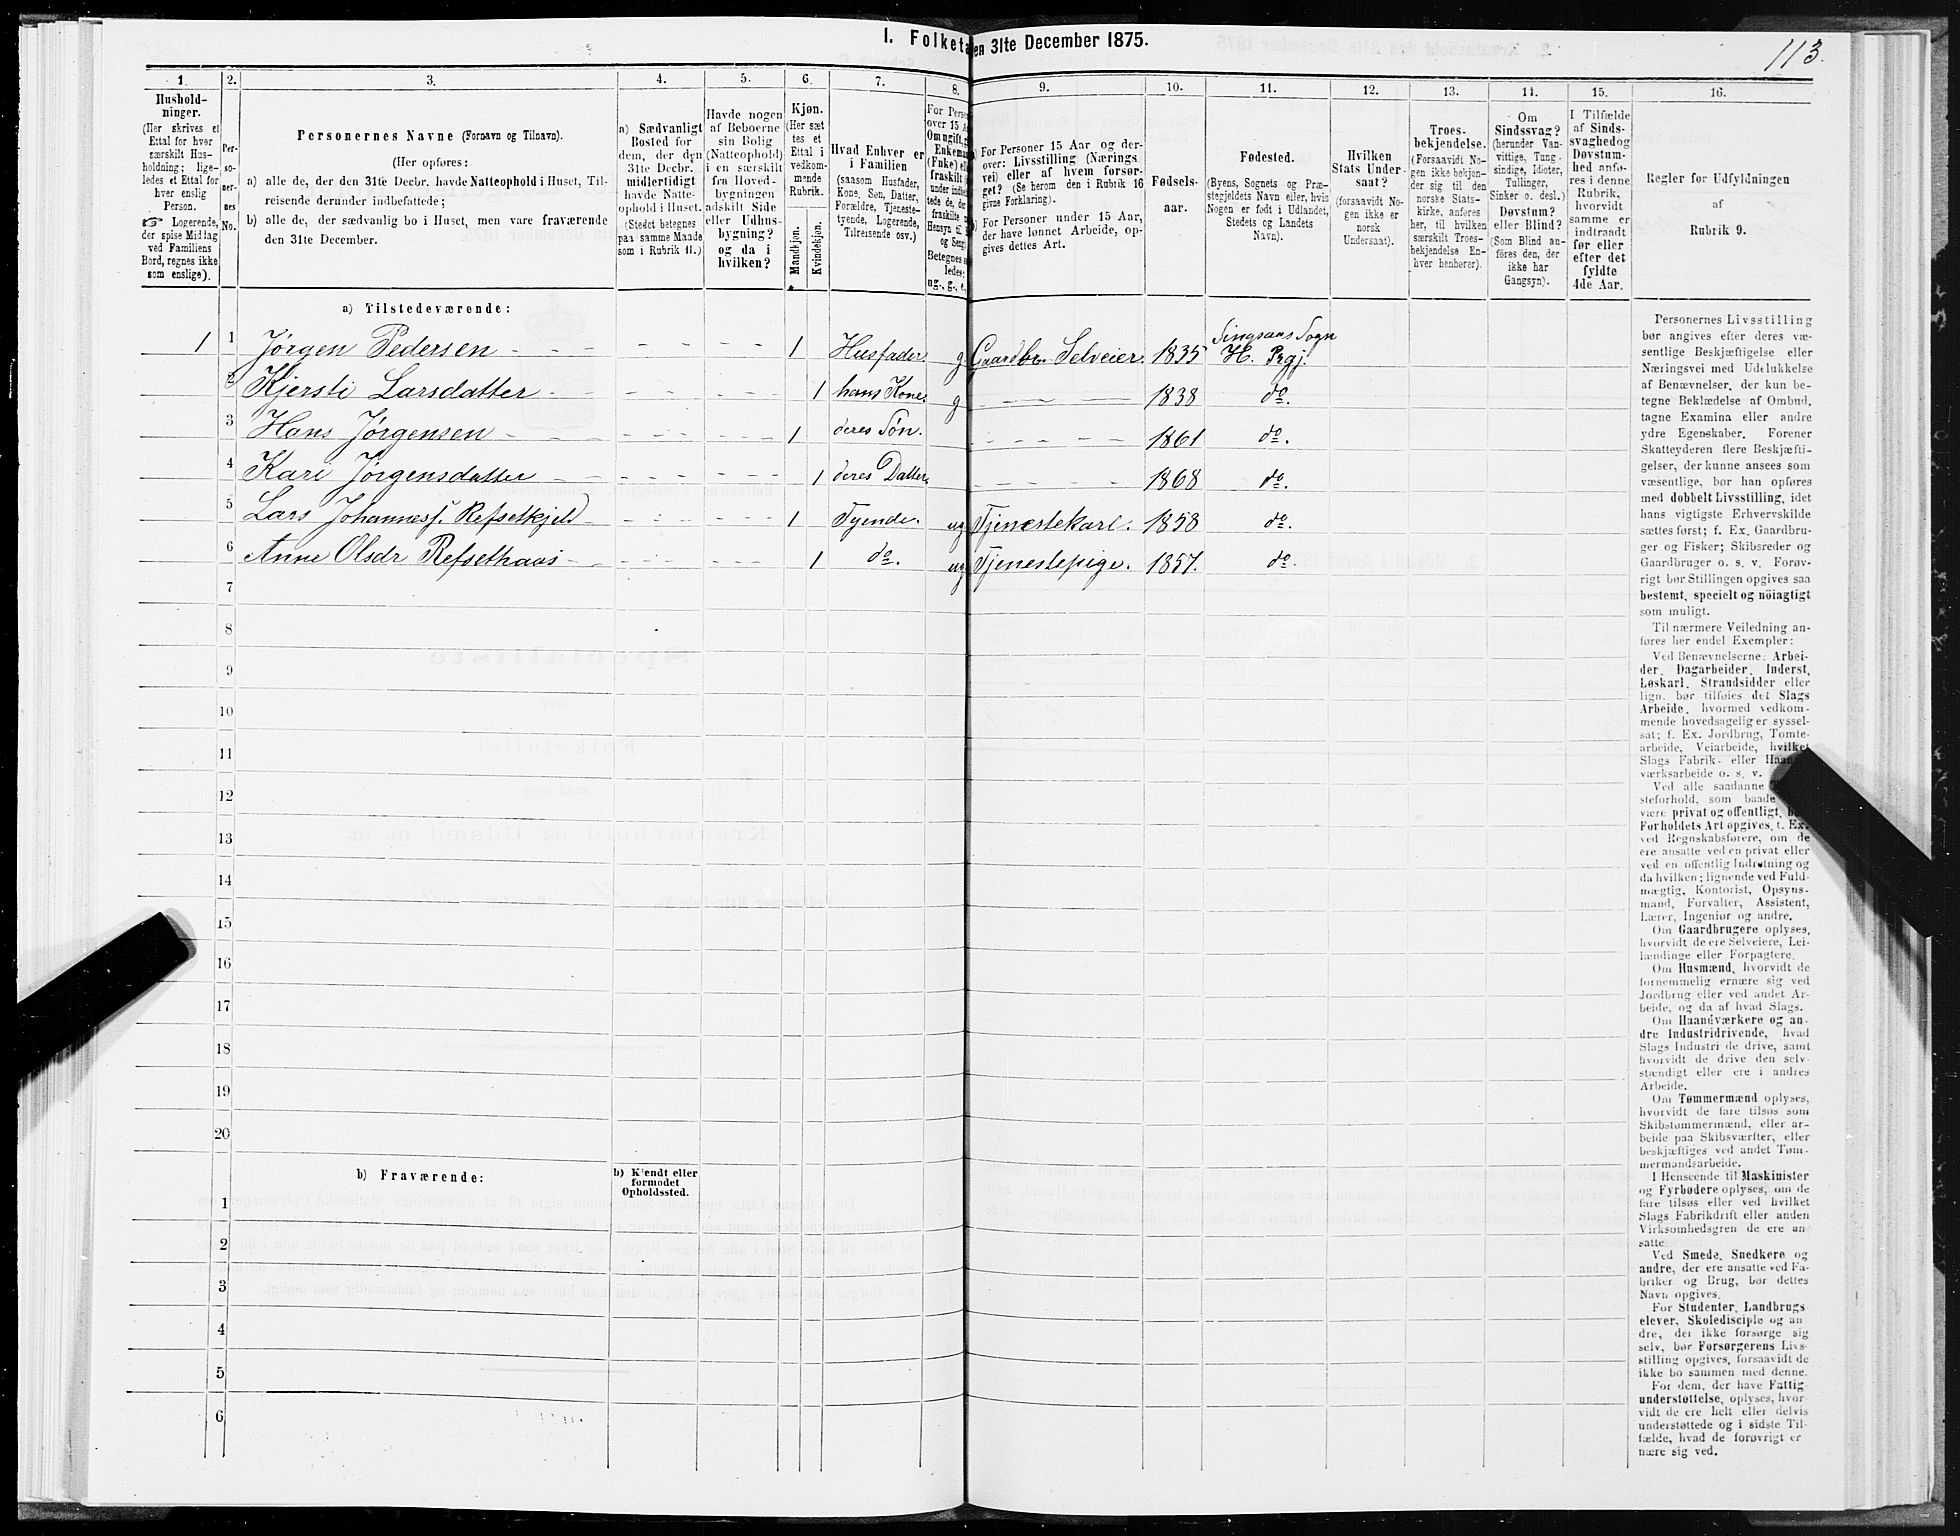 I. Folketa
en 31te December 1875.
113.
1.
2.
3.
4.
5.
6.
7.
8.
9.
10.
11.
12.
13.
14.
15.
16.
Hushold-
ninger.
(Her skrives et
Ettal for hver
særskilt Hus-
holdning; lige-
ledes et Ettal for
hver enslig
Person.
☞ Logerende,
der spise Middag
ved Familiens
Bord, regnes ikke
som enslige).
Per-
so-
ner-
nes
No.
Personernes Navne (Fornavn og Tilnavn).
(Her opføres:
a) alle de, der den 31te Decbr. havde Natteophold i Huset, Til-
reisende derunder indbefattede;
b) alle de, der sædvanlig bo i Huset, men vare fraværende
den 31te December.
a) Sædvanligt
Bosted for
dem, der den
31te Decbr.
midlertidigt
havde Natte-
ophold i Huset.
(Stedet betegnes
paa samme Maade
som i Rubrik 11.)
Havde nogen
af Beboerne
sin Bolig
(Natteophold)
i en særskilt
fra Hoved-
bygningen
adskilt Side
eller Udhus-
bygning?
og da i
hvilken?
Kjøn.
(Her sæt
tes et
Ettal i
vedkom-
mende
Rubrik.
Mandkjøn.
Kvindekjøn.
Hvad Enhver er
i Familien
(saasom Husfader,
Kone, Søn, Datter,
Forældre, Tjeneste-
tyende, Logerende,
Tilreisende osv.)
For Perso
over 15 A
Om ugift, g
Enkema
(Fuke) el
fraskilt
under bete
tede de, de
fraskilte
Hensyn til
og Seng
Betegnes
ledes:
ug., g., e.,
a) For Personer 15 Aar og der-
over: Livsstilling (Nærings
vei) eller af hvem forsør-
get? (Se herom den i Rubrik 16
givne Forklaring).
b) For Personer under 15 Aar,
der have lønnet Arbeide, op-
gives dettes Art.
Fødsels-
aar.
Fødested.
(Byens, Sognets og Præ-
stegjeldets Navn eller, hvis
Nogen er født i Udlandet,
Stedets og Landets
Navn).
Hvilken
Stats Under-
saat?
(forsaavidt No-
gen ikke er
norsk
Undersaat).
Troes-
bekjendelse.
(Forsaavidt No-
gen ikke bekjen-
der sig til den
norske Stats-
kirke, anføres
her, til hvilken
særskilt Troes-
bekjendelse En-
hver henhører).
Om
Sindssvag?
(herunder Van-
vittige, Tung-
sindige, Idioter,
Tullinger,
Sinker o. desl.)
Døvstum?
eller Blind?
(Som Blind an-
føres den, der
ikke har
Gangsyn).
I Tilfælde
af Sinds-
svaghedog
Døvstum-
hed anfø-
res i denne
Rubrik,
hvorvidt
samme er
indtraadt
før eller
efter det
fyldte
4de Aar.
Regler for Udfyldningen
af
Rubrik 9.
a) Tilstedeværende:
1 1 Jørgen Pedersen 1 Husfader g. Gaardbr. Selveier. 1835 Singsaas Sogn H. Prgj.
2 Kjersti Larsdatter 1 hans Kone g 1838 do.
3 Hans Jørgensen 1 deres Søn. 1861 do.
4 Kari Jørgensdatter 1 deres Datter 1868 do.
5 Lars Johannesf. Refsetkjeld 1 Tyende. ug Tjenestekarl. 1858 do.
6 Anne Olsdr Refsethaas 1 do. ug Tjenestepige. 1857. do.
7
8
9
10
11
12
13
14
15
16
17
18
19
20
b) Fraværende:
b) Kjendt eller
formodet
Opholdssted.
1
2
3
4
5
6
Personernes Livsstilling
bør angives efter deres væ-
sentlige Beskjæftigelse eller
Næringsvei med Udelukkelse
af Benævnelser, der kun be-
tegne Beklædelse af Ombud,
tagne Examina eller andre
ydre Egenskaber. Forener
Skatteyderen flere Beskjæfti-
gelser, der kunne ansees som
væsentlige, bør han opføres
med dobbelt Livsstilling, idet
hans vigtigste Erhvervskilde
sættes først; f. Ex. Gaardbru-
ger og Fisker; Skibsreder og
Gaardbruger o. s. v. Forøv-
rigt bør Stillingen opgives saa
bestemt, specielt og nöiagtigt
som muligt.
Til nærmere Veiledning an-
føres her endel Exempler:
Ved Benævnelserne: Arbei-
der, Dagarbeider, Inderst,
Løskarl, Strandsidder eller
lign. bør tilføies det Slags
Arbeide, hvormed vedkom-
mende hovedsagelig er syssel-
sat; f. Ex. Jordbrug, Tomte-
arbeide, Veiarbeide, hvilket
Slags Fabrik- eller Haand-
værksarbeide o. s. v.
Ved alle saadanne
steforhold, som baade
være privat og offentligt,
Forholdets Art opgives, t. Ex.
ved Regnskabsførere, om de
ere ansatte ved en privat eller
ved en offentlig Indretning og
da hvilken; lignende ved Fuld-
mægtig, Kontorist, Opsyns-
mand, Forvalter, Assistent,
Lærer, Ingeniør og andre.
Om Gaardbrugere oplyses,
hvorvidt de ere Selveiere, Lei-
lændinge eller Forpagtere.
Om Husmænd, hvorvidt de
fornemmelig ernære sig ved
Jordbrug eller ved andet Ar-
beide, og da af hvad Slags.
Om Haandværkere og an-
dre Industridrivende, hvad
Slags Industri de drive, samt
hvorvidt de drive den selv-
stændigt eller ere i andres
Arbeide.
Om Tømmermænd oplyses,
hvorvidt de fare tilsøs som
Skibstømmermænd, eller ar-
beide paa Skibsværfter, eller
beskjæftiges ved andet Tøm-
mermandsarbeide.
I Henseende til Maskinister
og Fyrbødere oplyses, om de
fare tilsøs eller ved hvilket
Slags Fabrikdrift eller anden
Virksomhedsgren de ere an-
satte
Ved Smede, Snedkere og
andre, der ere ansatte ved Fa-
briker og Brug, bør dettes
Navn opgives.
For Studenter, Landbrugs
elever, Skoledisciple og an
dre, der ikke forsørge sig
selv, bør Forsørgerens Livs-
stilling opgives, forsaavidt de
ikke bo sammen med denne.
For dem, der have Fattig-
understøttelse, oplyses, hvor-
vidt de ere helt eller delvis
understøttede og i sidste Til-
fælde, hvad de forøvrigt er
nære sig ved.